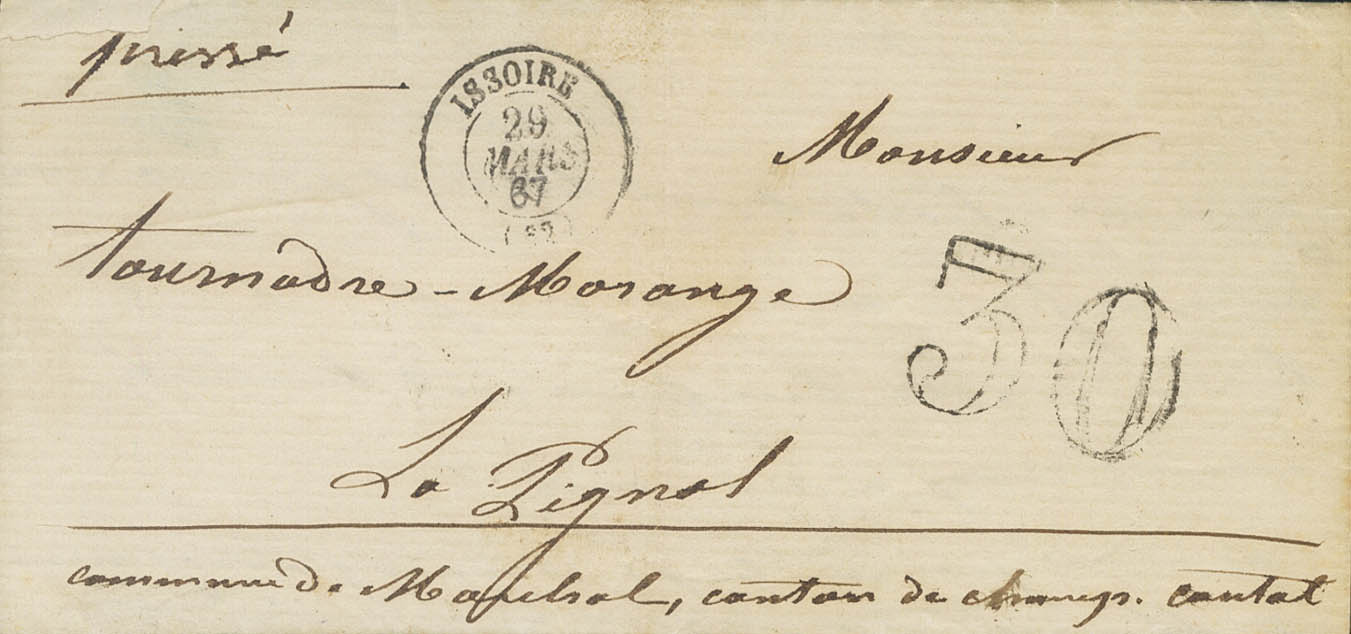 pressé
ISSOIRE
29
MARS
67
Monsieur
tournadre - Morange
30
La Pignol
commune de Marchal, canton de champs. cantal